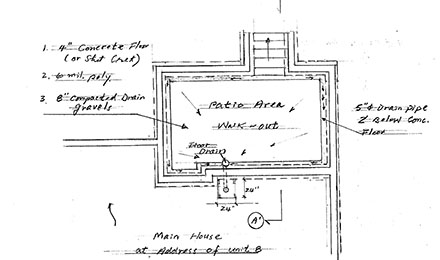 1. 4" Concrete Floor
(or Slat Crete)
2. 6 mil. poly
3. 8" Compacted Drain
gravels
Patio Area
Walk-out
Floor
Drain
5"ø Drain pipe
2' Below Conc.
Floor
24"
24"
A'
Main House
at Address of unit B